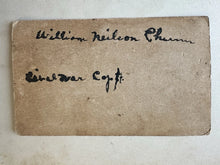 William Neilson
Civil War Capt.